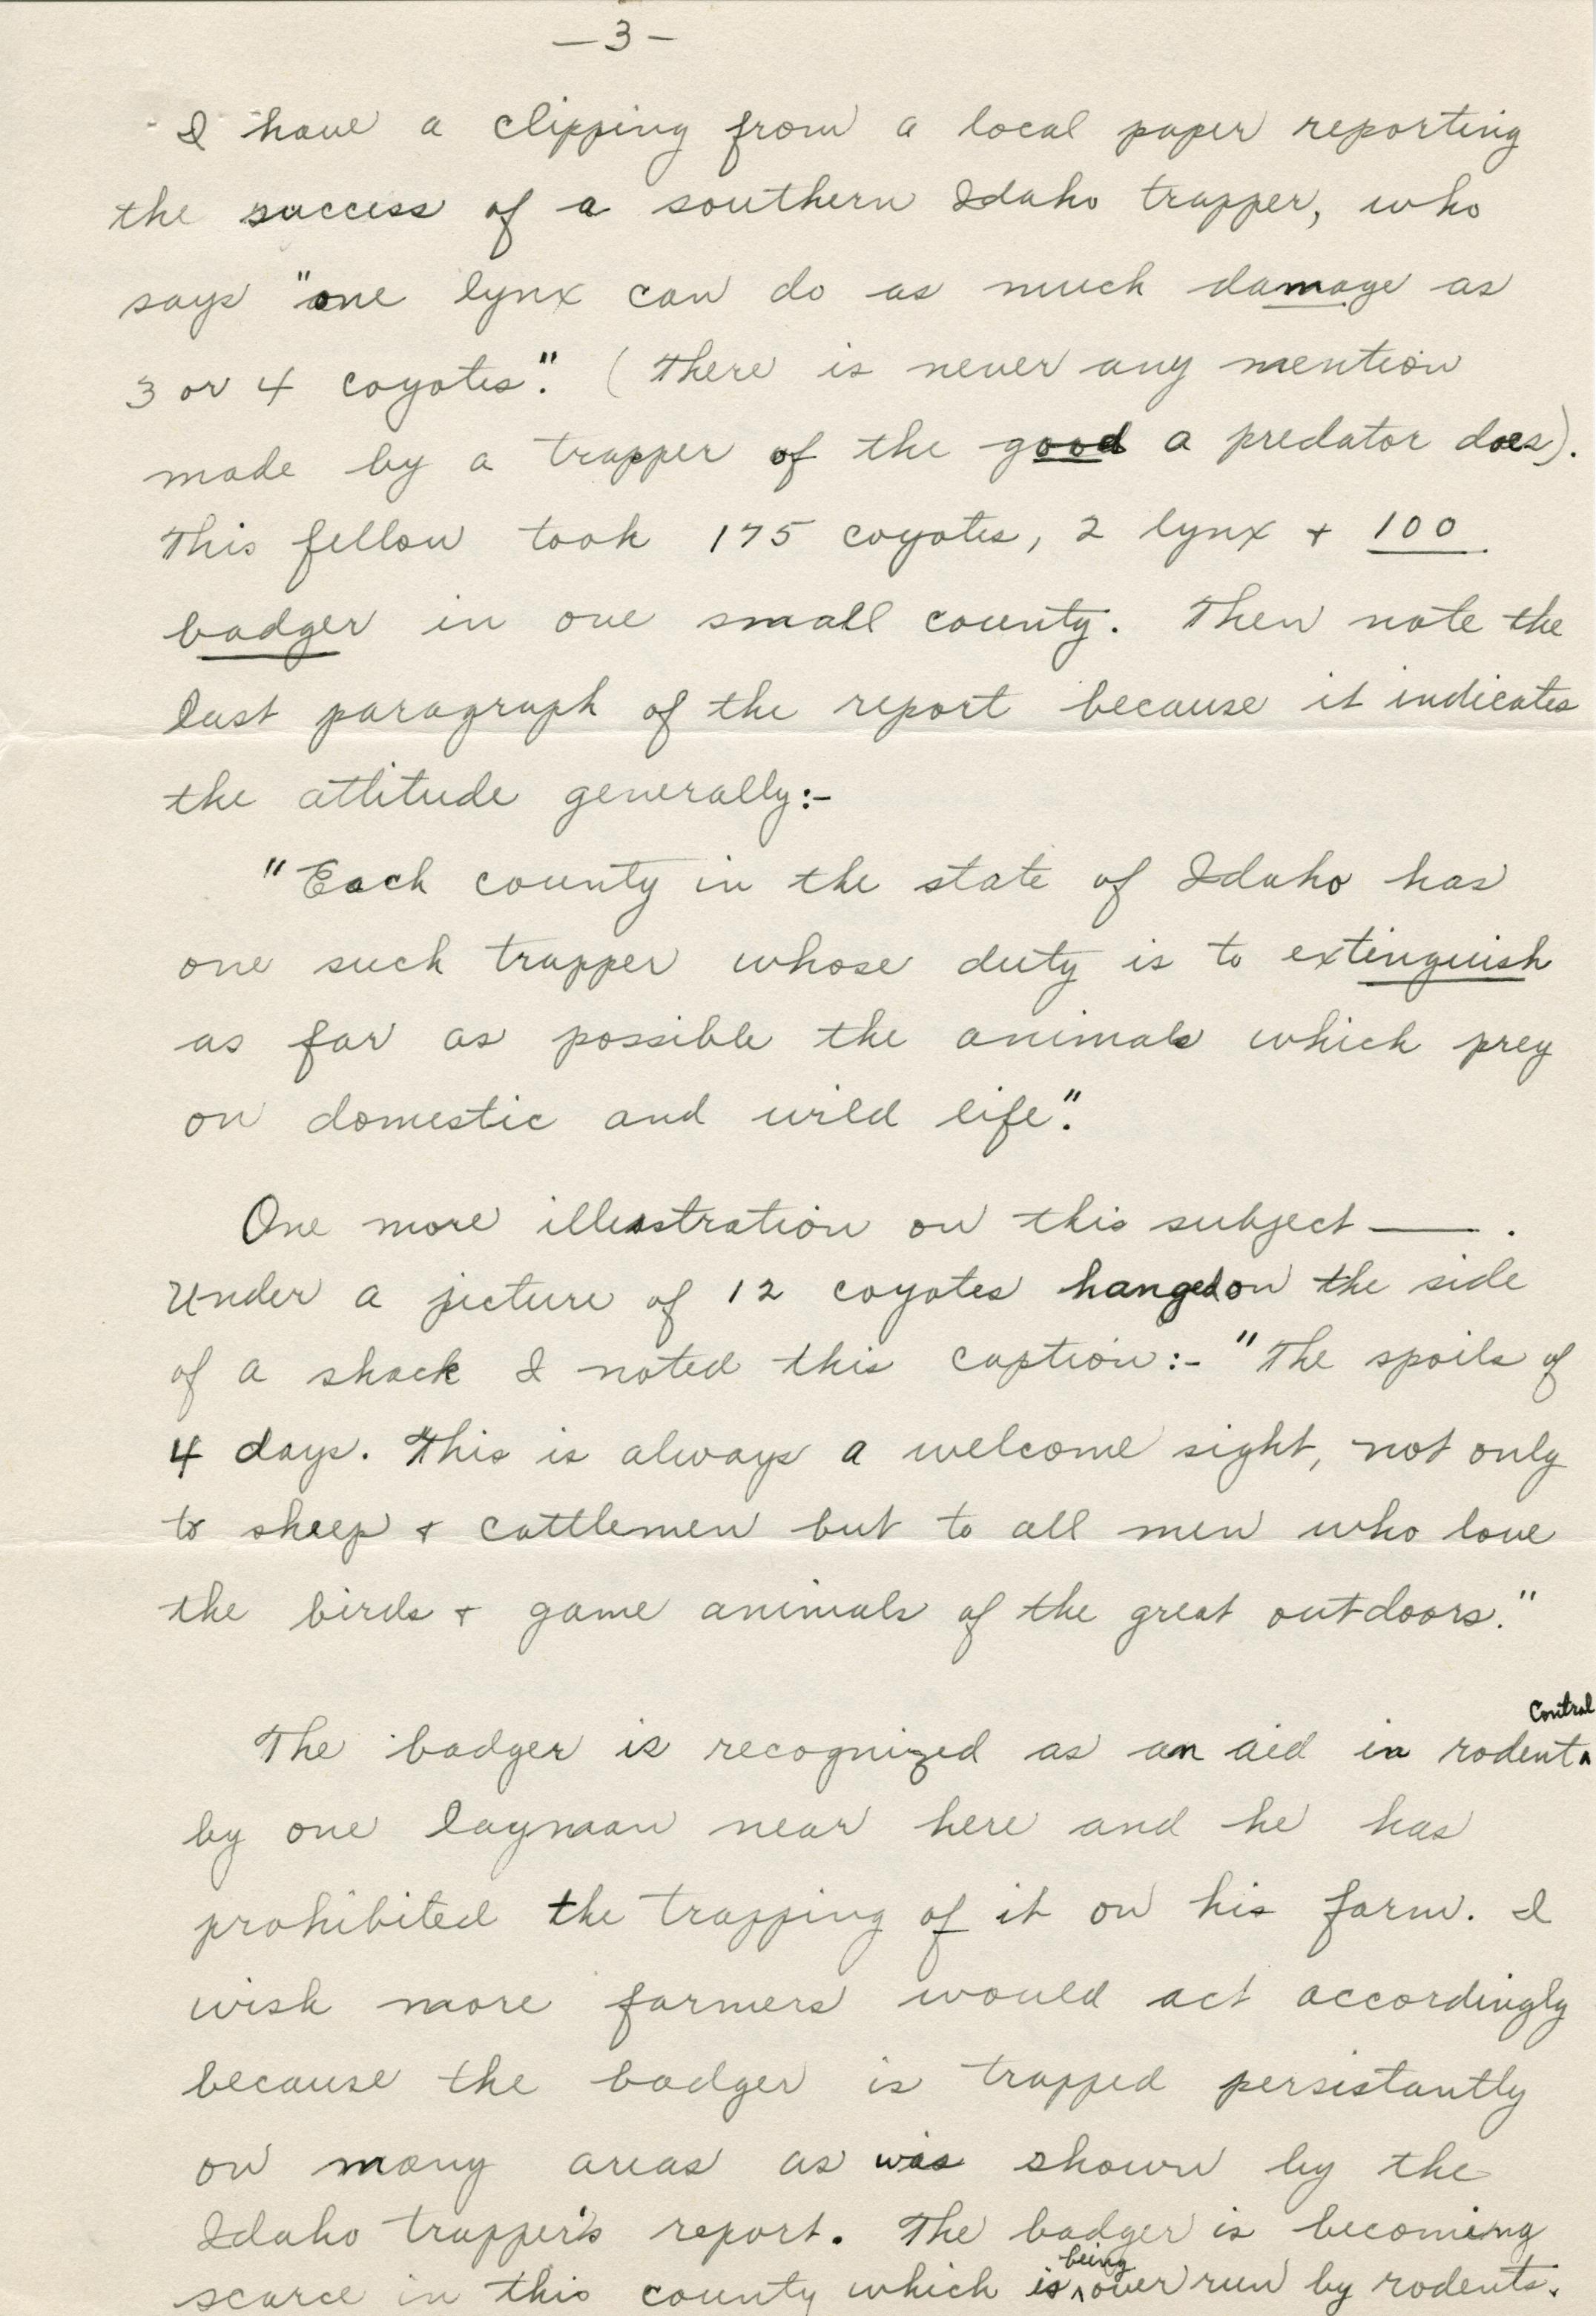 —3—
I have a clipping from a local paper reporting
the success of a southern Idaho trapper, who
says "one lynx can do as much damage as
3 or 4 coyotes." (There is never any mention
made by a trapper of the good a predator does).
This fellow took 175 coyotes, 2 lynx + 100
badger in one small county. Then note the
last paragraph of the report because it indicates
the attitude generally:-
"Each county in the state of Idaho has
one such trapper whose duty is to extinguish
as far as possible the animals which prey
on domestic and wild life."
One more illustration on this subject —— .
Under a picture of 12 coyotes hanged on the side
of a shack I noted this caption:- "The spoils of
4 days. This is always a welcome sight, not only
to sheep + cattlemen but to all men who love
the birds + game animals of the great outdoors."
The badger is recognized as an aid in rodent ^ Control
by one layman near here and he has
prohibited the trapping of it on his farm. I
wish more farmers would act accordingly
because the badger is trapped persistantly
on many areas as was shown by the
Idaho trapper's report. The badger is becoming
scarce in this county which is ^ being over run by rodents.